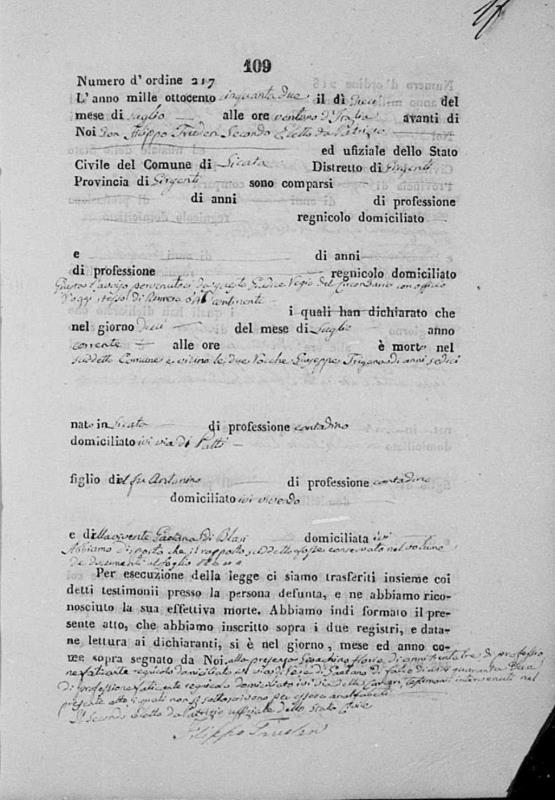 109
Numero d'ordine 217
L'anno mille ottocento cinquanta due il dì dieci del
mese di luglio alle ore ventuno d'Italia avanti di
Noi Don Filippo Secondo Eletto da Patrizio
ed ufiziale dello Stato
Civile del Comune di Licata Distretto di Girgenti
Provincia di Girgenti sono comparsi
di anni di professione
regnicolo domiciliato
e di anni
di professione regnicolo domiciliato
Giusto l'avviso pervenutoci da questo Giudice Regio del Circondario con officio
d'oggi stesso di numero continente
i quali han dichiarato che
nel giorno dieci del mese di luglio anno
corrente alle ore è morto nel
suddetto Comune e vicino le due Rocche Giuseppe Trigona di anni sedici
nato in Licata di professione contadino
domiciliato ivi via di Patti
figlio del fu Antonino di professione contadino
domiciliato ivi vivendo
e della vivente Gaetana Di Blasi domiciliata ivi
Abbiamo disposto che il rapporto suddetto fosse conservato nel volume
de documenti al foglio
Per esecuzione della legge ci siamo trasferiti insieme coi
detti testimonii presso la persona defunta, e ne abbiamo rico-
nosciuto la sua effettiva morte. Abbiamo indi formato il pre-
sente atto, che abbiamo inscritto sopra i due registri, e data-
ne lettura ai dichiaranti, si è nel giorno, mese ed anno co-
me sopra segnato da Noi alla presenza Gioachino di anni di professio
ne faticante regnicolo domiciliato ivi e di Gaetano di anni quaranta due
di professione faticante regnicolo domiciliato ivi via testimonj intervenuti nel
presente atto, i quali non si sottoscrivono per essere analfabeti
Il Secondo Eletto da Patrizio uffiziale dello Stato Civile
Filippo